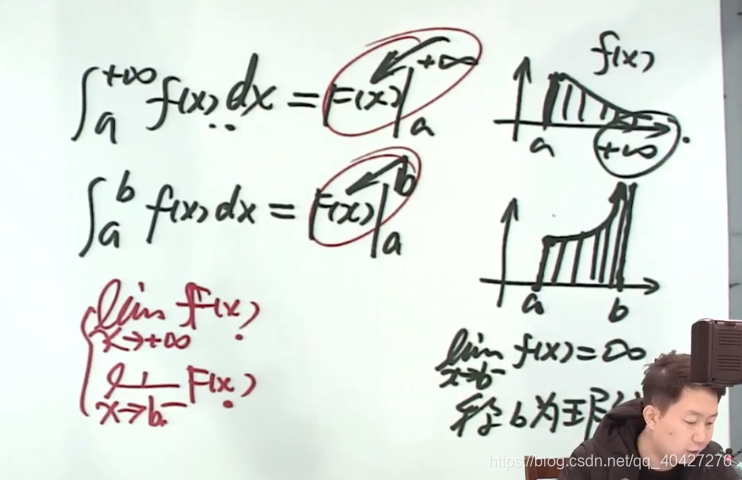 ∫_a^{+∞} f(x) dx = F(x)|_a^{+∞}
∫_a^b f(x) dx = F(x)|_a^b
lim_{x→+∞} F(x)
lim_{x→b⁻} F(x)
f(x)
a +∞
a b
lim_{x→b⁻} f(x) = ∞
b为
https://blog.csdn.net/qq_40427276